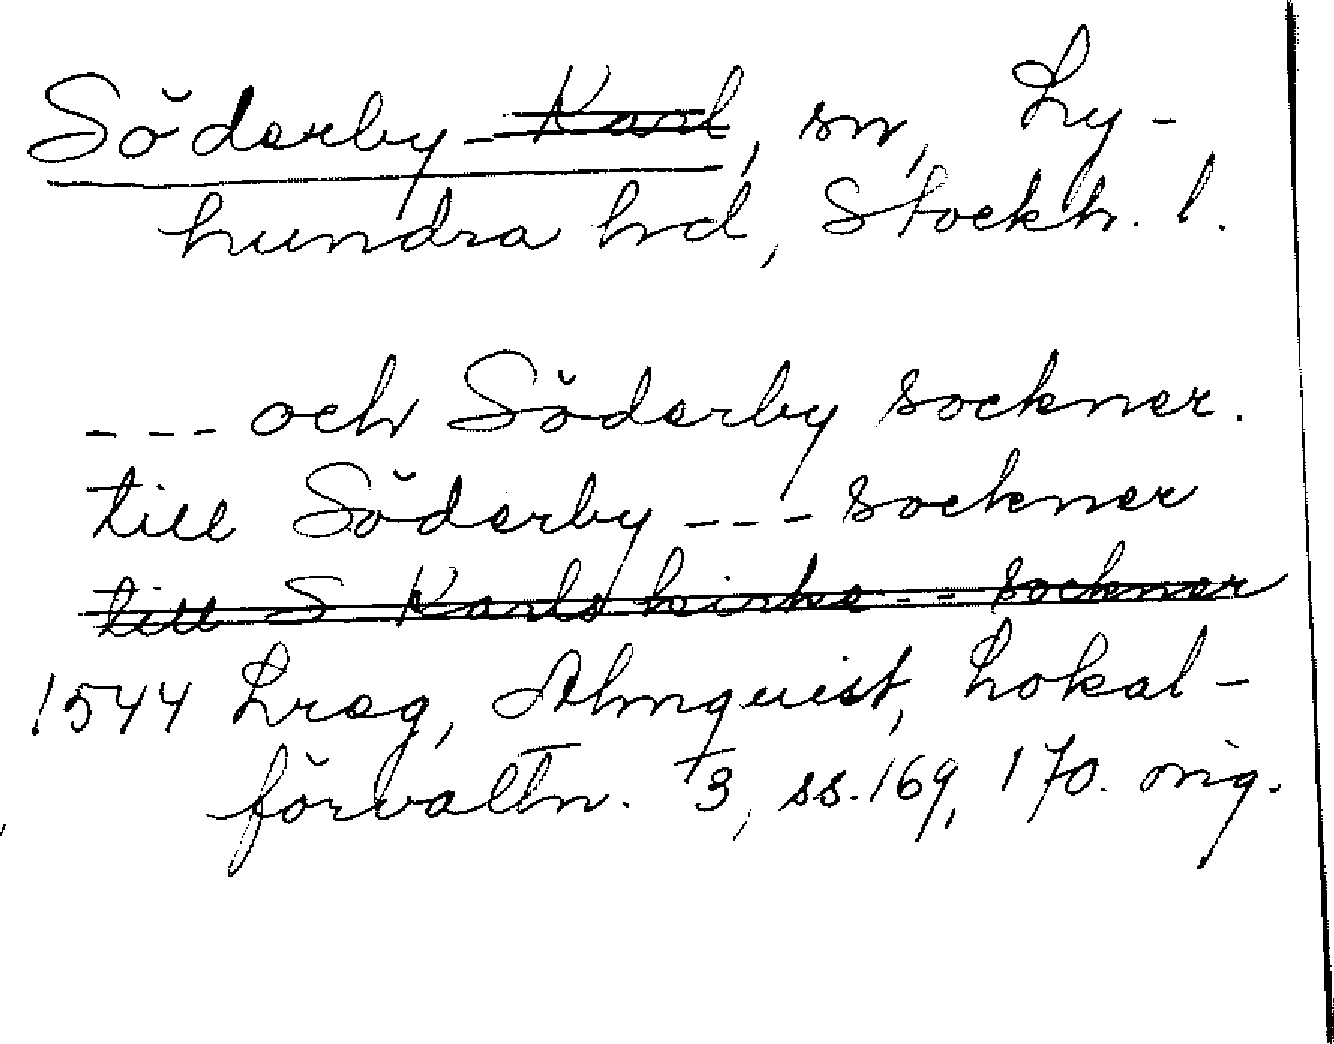 Söderby-Karl, sn, Ly-
hundra hd, Stockh. l.
--- och Söderby sockner.
till Söderby --- sockner
till S Karls kirke --- sockner
1544 Lreg, Almquist, Lokal-
förvaltn. 3, ss. 169, 170. orig.